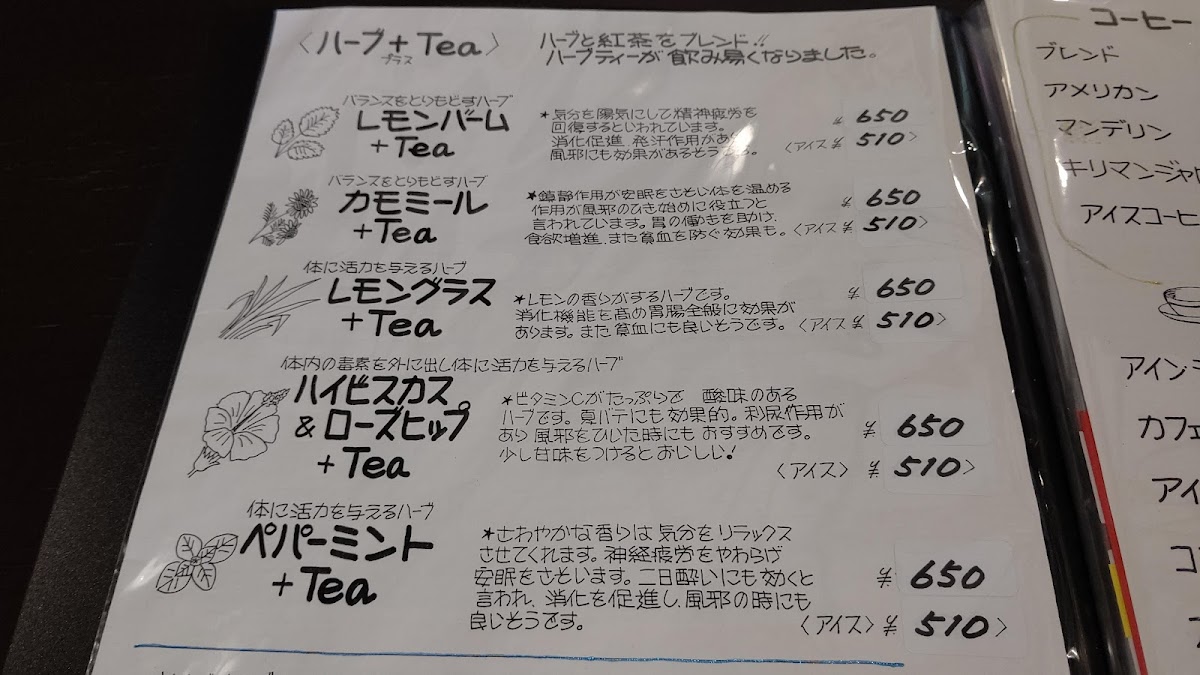 〈ハーブ+Tea〉
プラス
ハーブと紅茶をブレンド!!
ハーブティーが飲み易くなりました。
バランスをとりもどすハーブ
レモンバーム
+Tea
★気分を陽気にして精神疲労を
回復するといわれています。
消化促進、発汗作用があり
風邪にも効果があるそうです。
¥650
〈アイス¥510〉
バランスをとりもどすハーブ
カモミール
+Tea
★鎮静作用が安眠をさそい体を温める
作用が風邪のひき始めに役立つと
言われています。胃の働きを助け、
食欲増進、また貧血を防ぐ効果も。
¥650
〈アイス¥510〉
体に活力を与えるハーブ
レモングラス
+Tea
★レモンの香りがするハーブです。
消化機能を高め胃腸全般に効果が
あります。また貧血にも良いそうです。
¥650
〈アイス¥510〉
体内の毒素を外に出し体に活力を与えるハーブ
ハイビスカス
&ローズヒップ
+Tea
★ビタミンCがたっぷりで 酸味のある
ハーブです。夏バテにも効果的。利尿作用が
あり風邪をひいた時にもおすすめです。
少し甘味をつけるとおいしい!
¥650
〈アイス〉¥510〉
体に活力を与えるハーブ
ペパーミント
+Tea
★さわやかな香りは気分をリラックス
させてくれます。神経疲労をやわらげ
安眠をさそいます。二日酔いにも効くと
言われ、消化を促進し、風邪の時にも
良いそうです。
¥650
〈アイス〉¥510〉
コーヒー
ブレンド
アメリカン
マンデリン
キリマンジャロ
アイスコーヒ
アイン
カフェ
アイ
コ